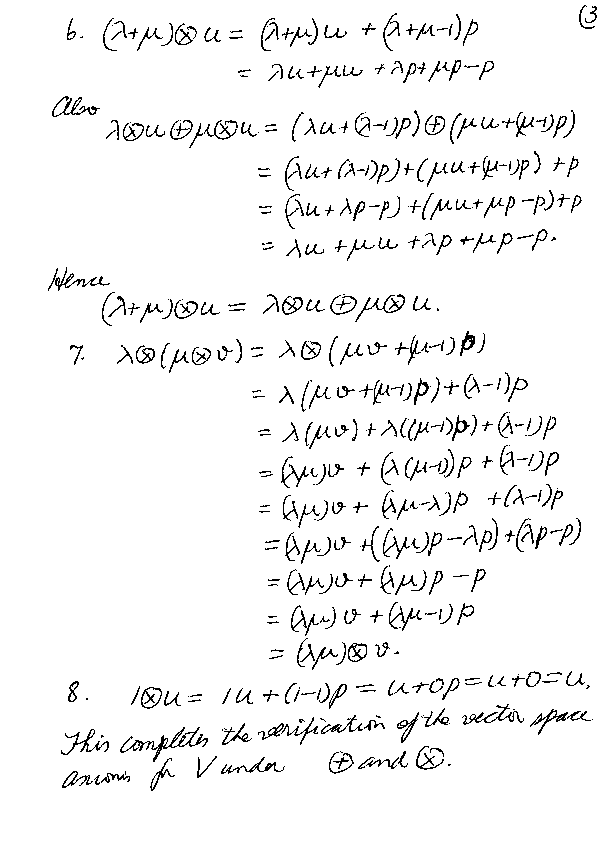 (3
6. (λ+μ)⊗u = (λ+μ)u + (λ+μ-1)p
= λu+μu + λp+μp-p
Also
λ⊗u ⊕ μ⊗u = (λu+(λ-1)p) ⊕ (μu+(μ-1)p)
= (λu+(λ-1)p)+(μu+(μ-1)p) + p
= (λu+λp-p)+(μu+μp-p)+p
= λu+μu+λp+μp-p.
Hence
(λ+μ)⊗u = λ⊗u ⊕ μ⊗u.
7. λ⊗(μ⊗v) = λ⊗(μv+(μ-1)p)
= λ(μv+(μ-1)p)+(λ-1)p
= λ(μv)+λ((μ-1)p)+(λ-1)p
= (λμ)v + (λ(μ-1))p + (λ-1)p
= (λμ)v + (λμ-λ)p + (λ-1)p
= (λμ)v + ((λμ)p-λp)+(λp-p)
= (λμ)v + (λμ)p - p
= (λμ)v + (λμ-1)p
= (λμ)⊗v.
8. 1⊗u = 1u + (1-1)p = u+0p = u+0 = u,
This completes the verification of the vector space
axioms for V under ⊕ and ⊗.